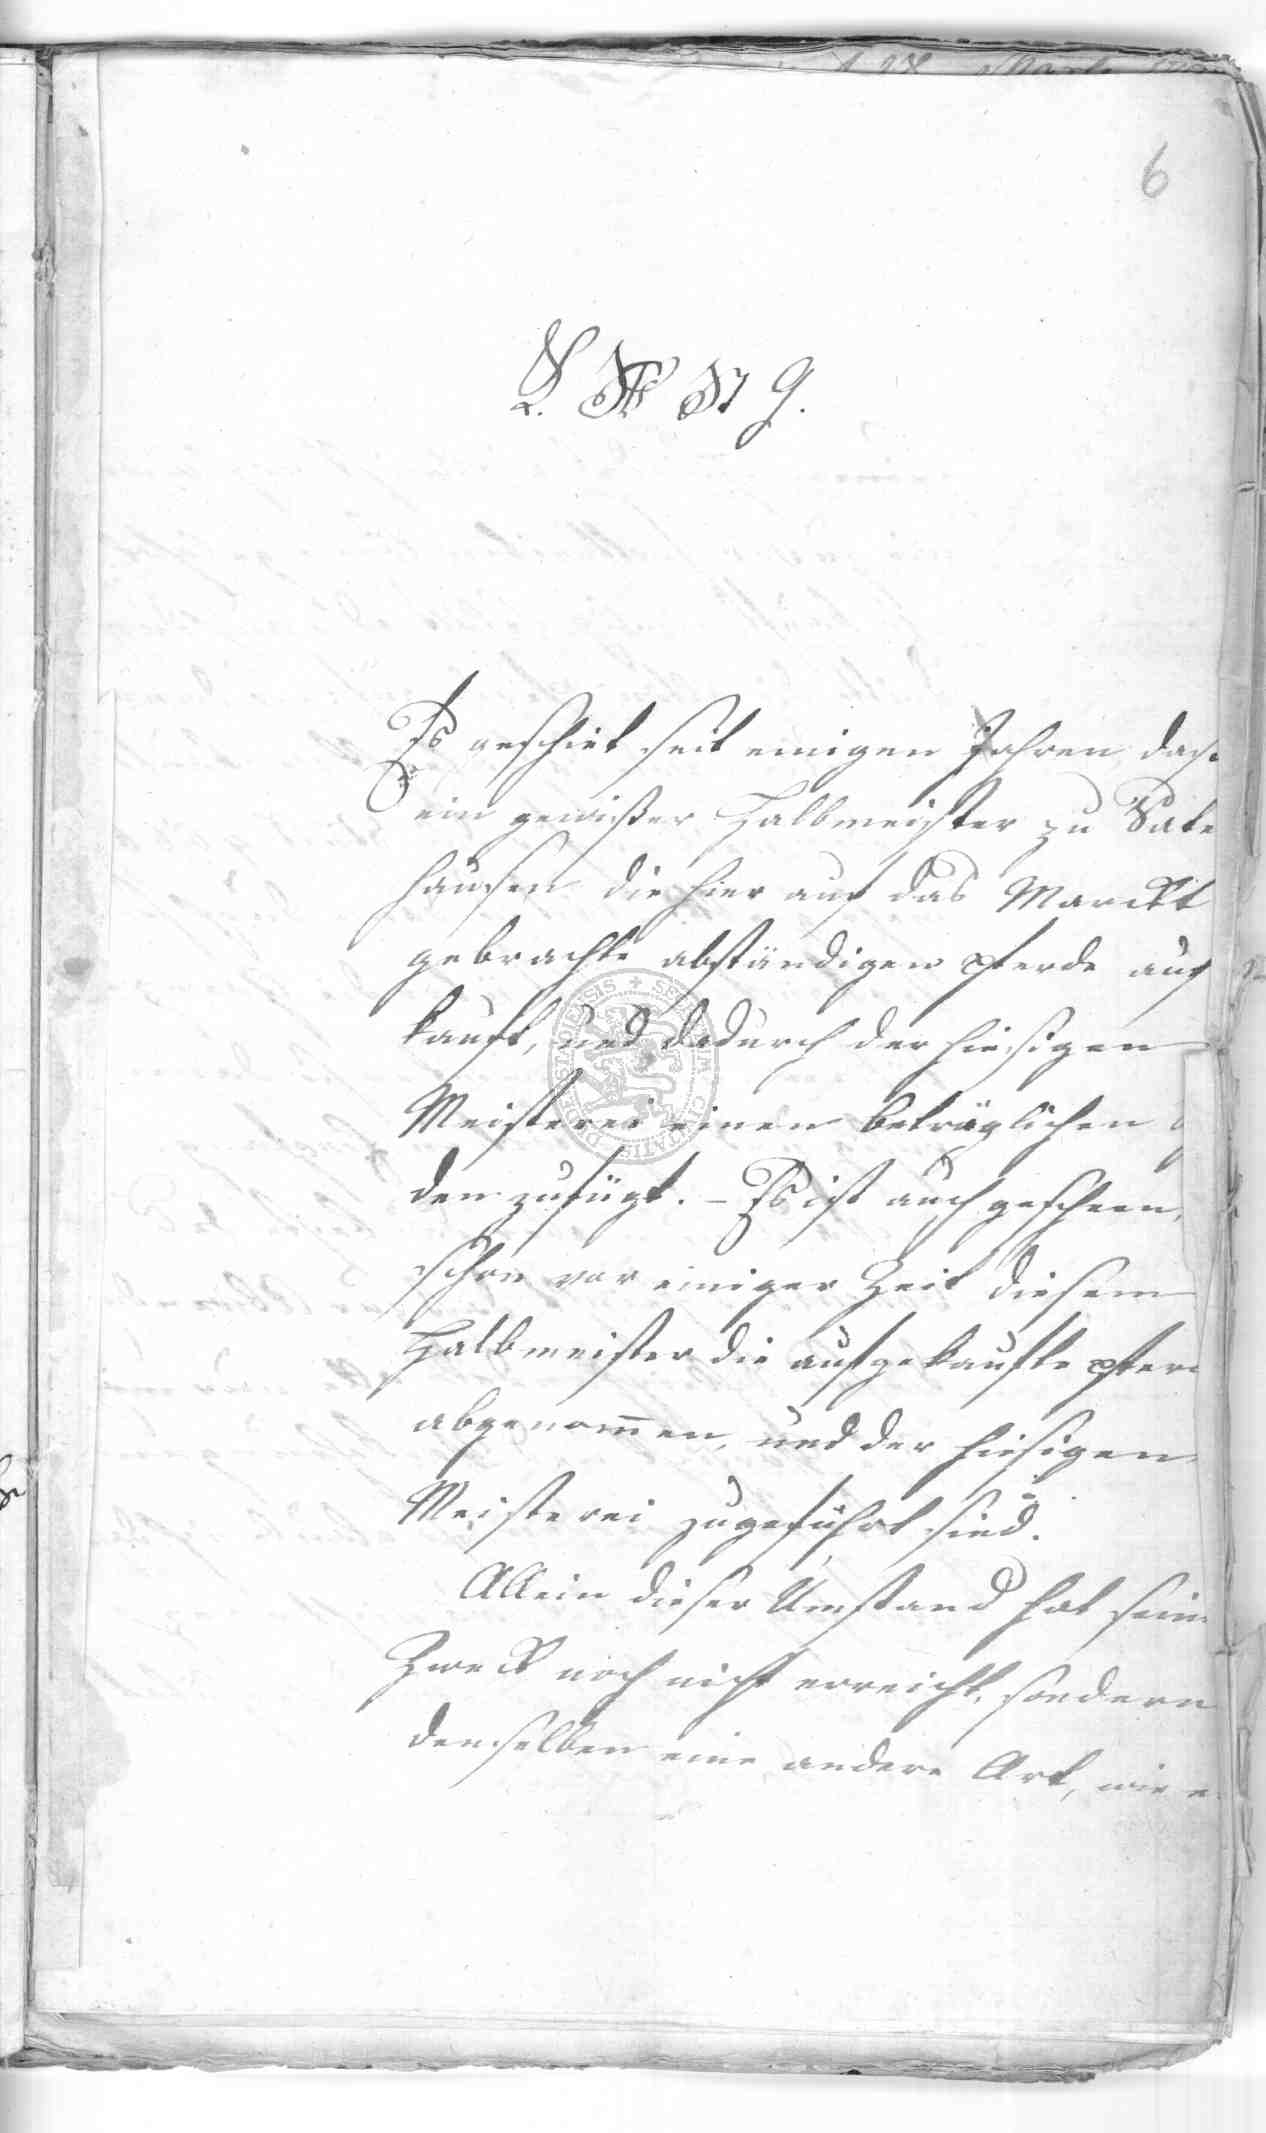 6
Es geschiet seit einigen Jahren, dass
ein gewißer Halbmeister zu Sate
hausen die hier auf das Marckt
gebrachte abständigen Pferde auf
kauft, und dadurch der hiesigen
Meisterei einen beträglichen
den zufügt. – Es ist auch gescheen,
schon vor einiger Zeit diesem
Halbmeister die aufgekaufte Pfer
abgenommen, und der hiesigen
Meisterei zugeführt sind.
Allein dieser Umstand hat sein
Zweck noch nicht erreicht, sondern
denselben eine andere Art, wie e